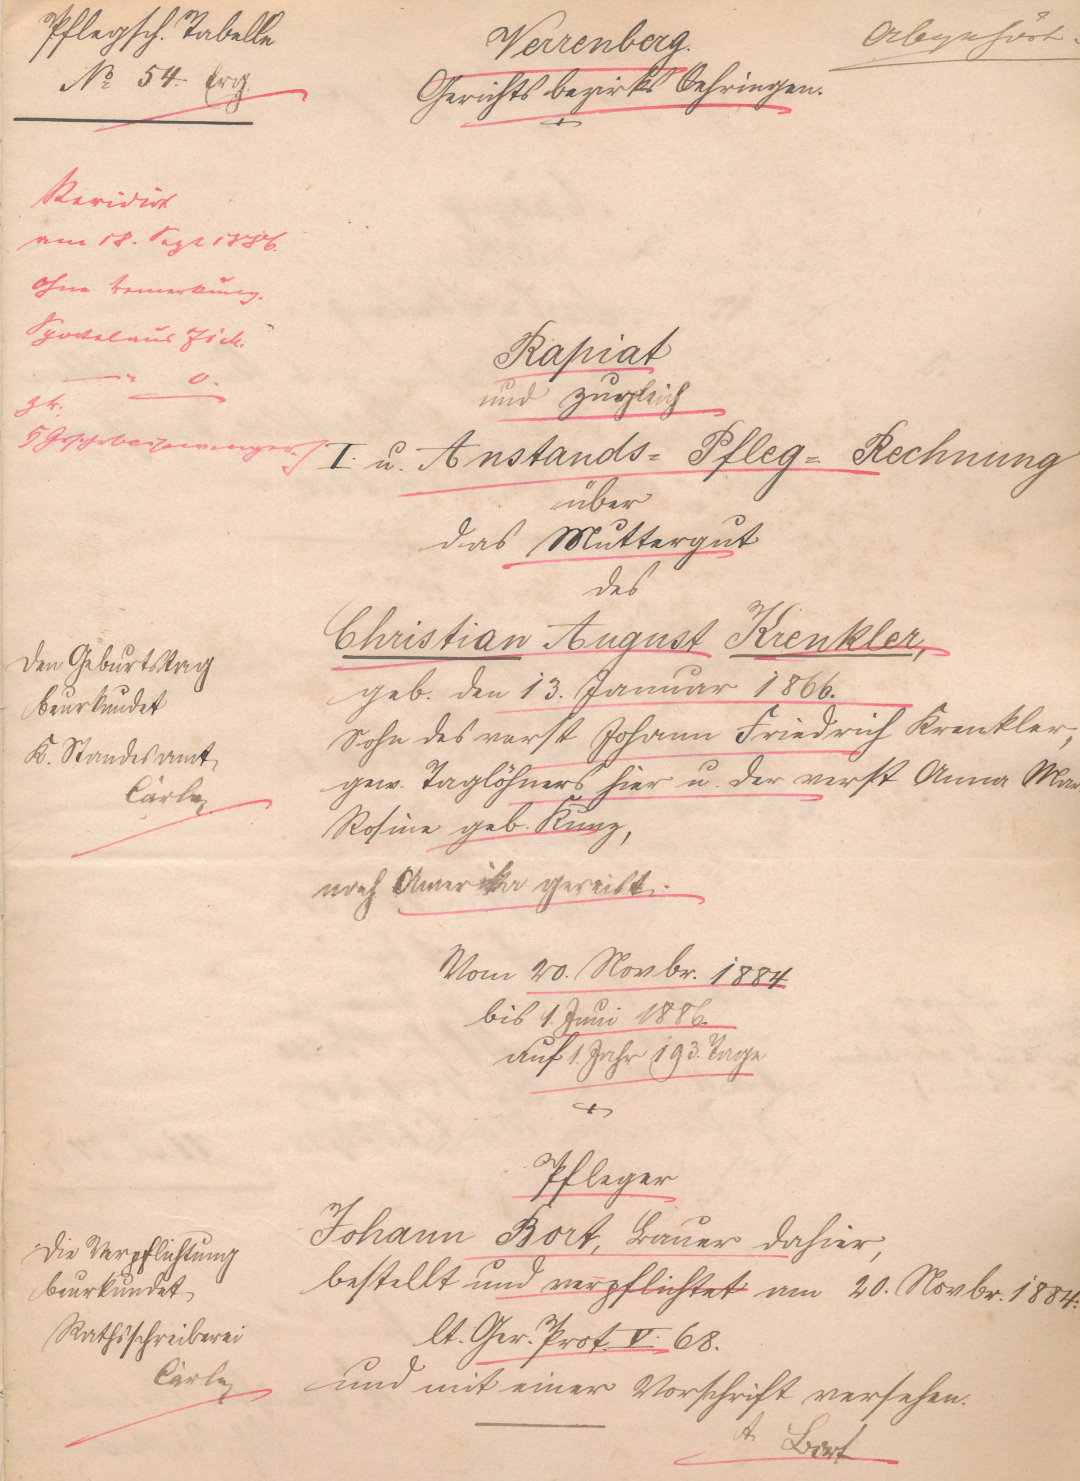 Pflegsch. Tabelle
No 54. Erg.
Verrenberg.
Gerichtsbezirks Oehringen.
Abgehört
Revidirt
am 18. Sept 1886.
ohne Bemerkung.
Sportel aus
0.
Rapiat
und zugleich
I. u. Anstands- Pfleg- Rechnung
über
das Muttergut
des
Christian August Krenkler,
geb. den 13. Januar 1866.
Sohn des verst Johann Friedrich Krenkler,
gew. Taglöhners hier u. der verst Anna Mar.
Rosine geb. Kunz,
nach Amerika gereist.
Den Geburtstag
beurkundet
K. Standesamt
Vom 20. Novbr. 1884
bis 1 Juni 1886.
auf 1. Jahr 193. Tage
Pfleger
Johann Bort, Bauer dahier,
bestellt und verpflichtet am 20. Novbr. 1884.
lt. Ger. Prot. V. 68.
und mit einer Vorschrift versehen.
Die Verpflichtung
beurkundet
Rathsschreiberei
Bort